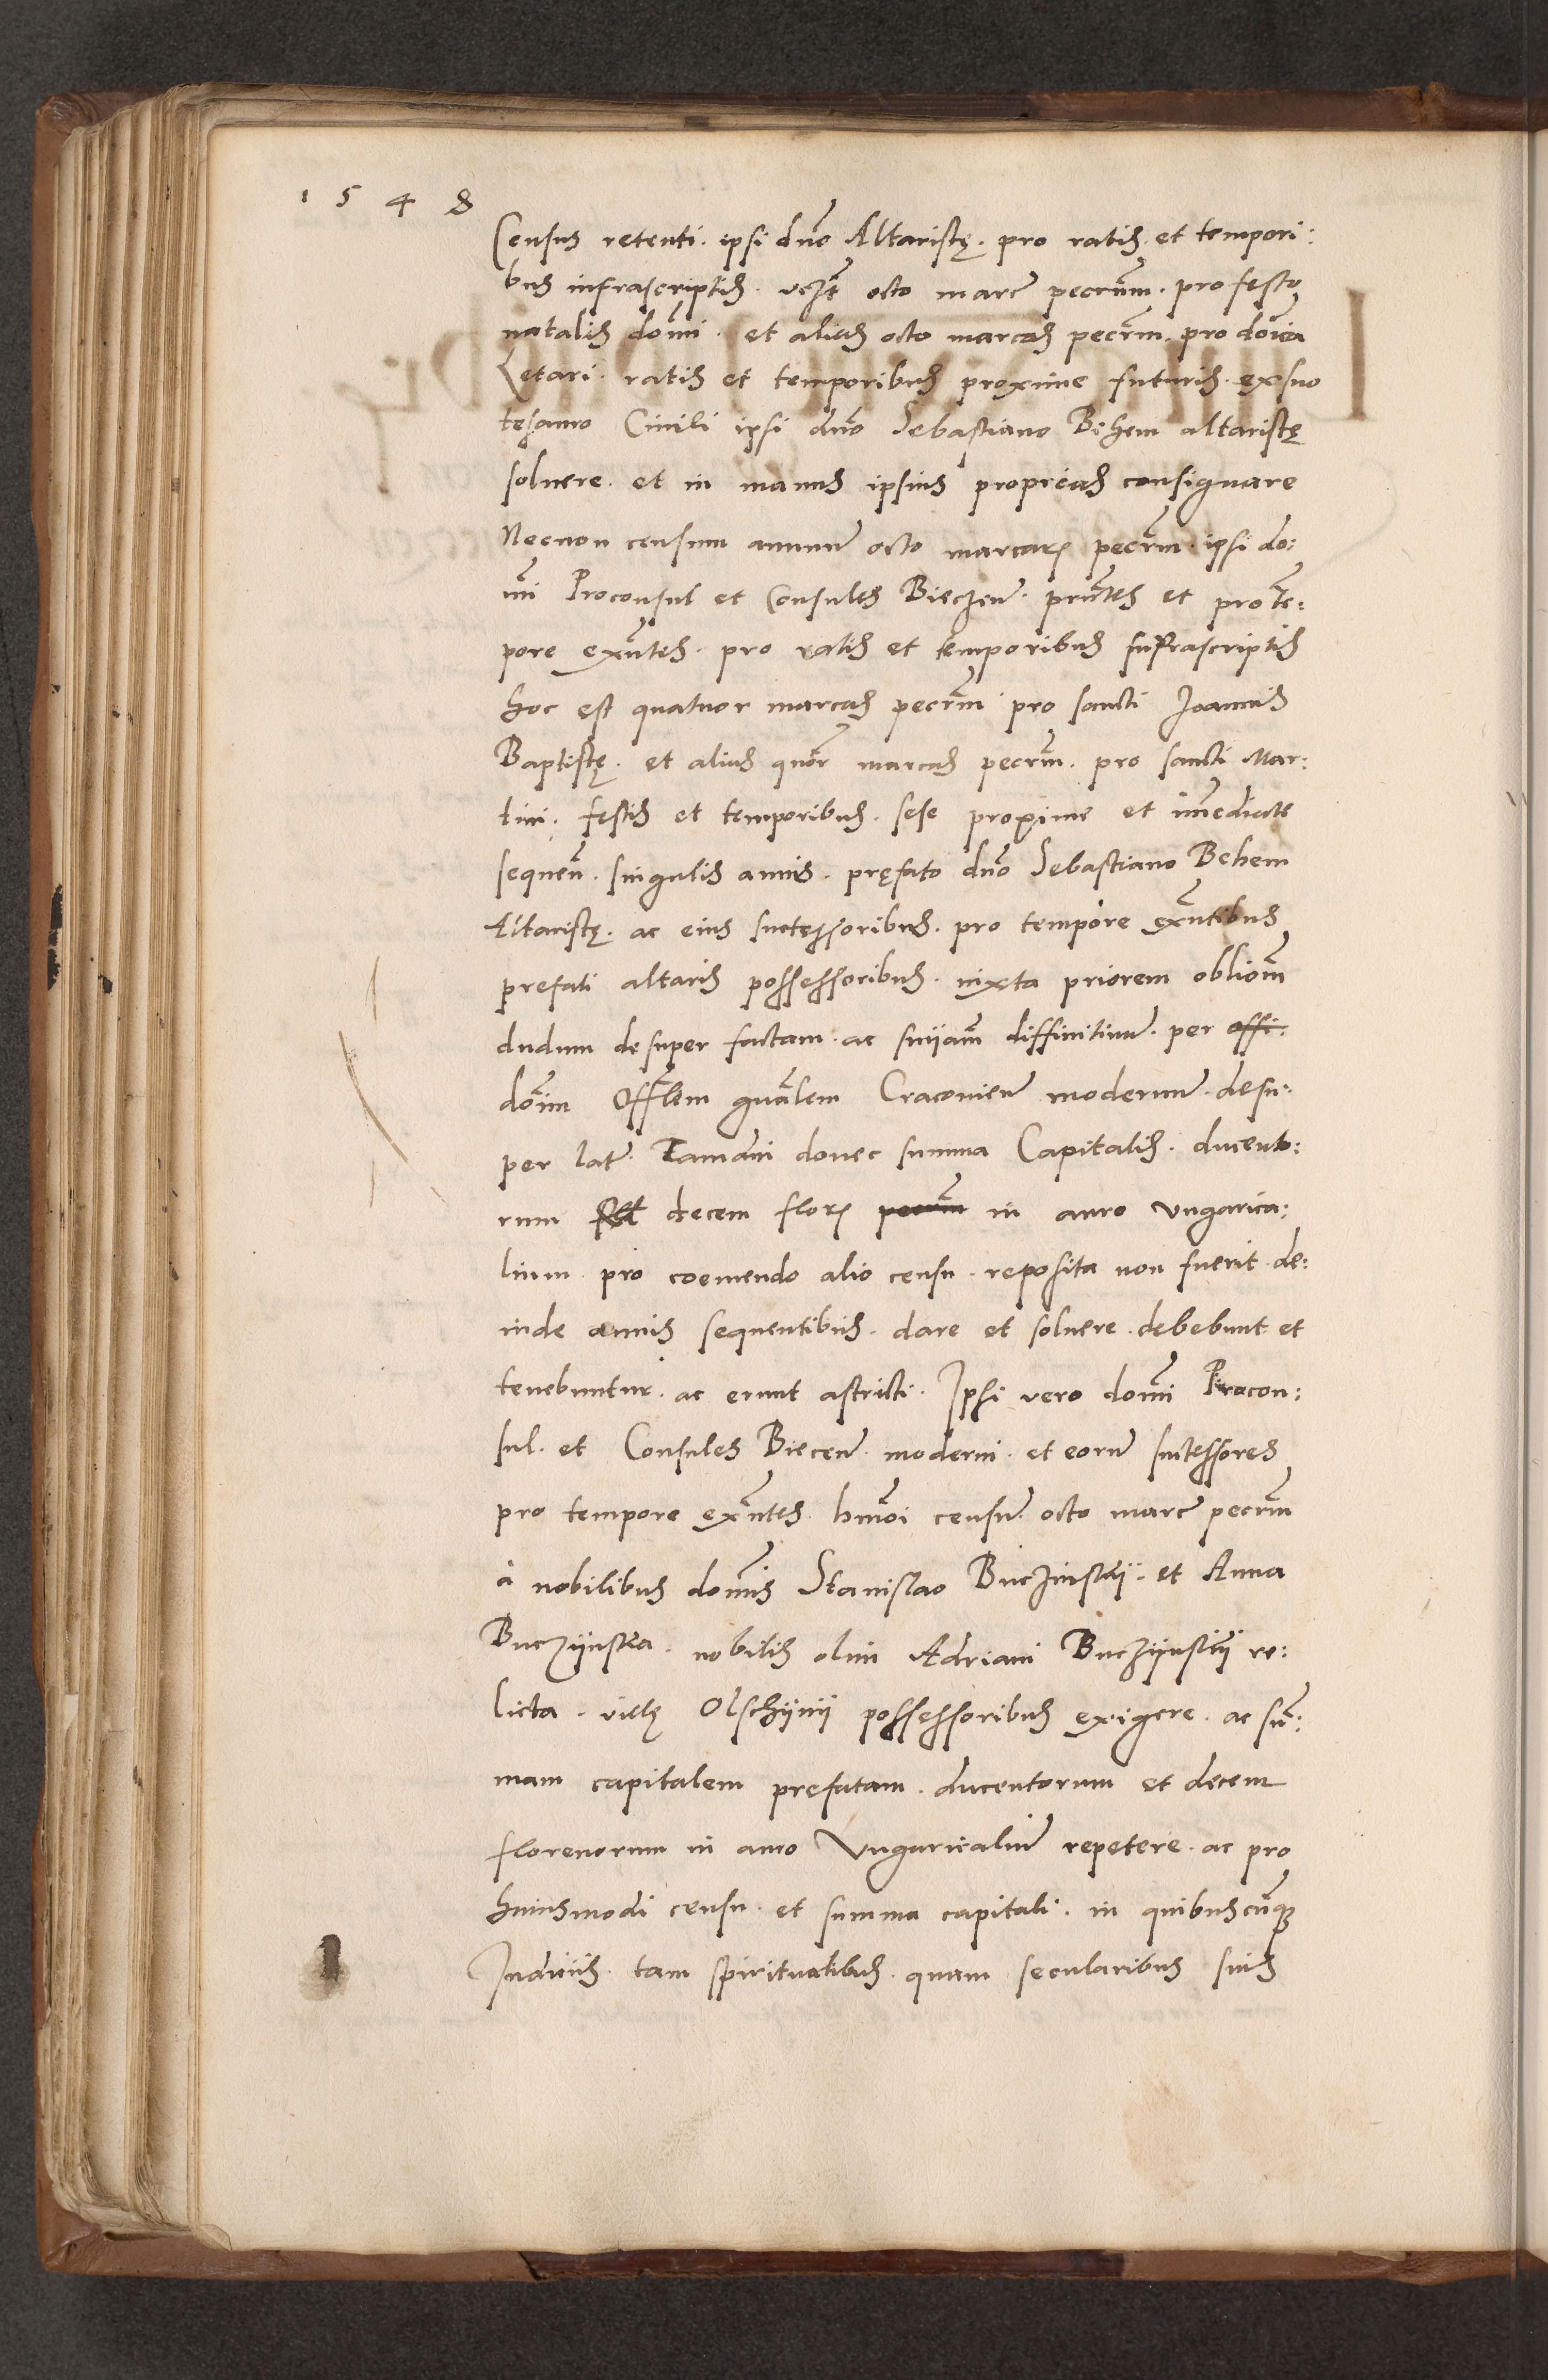 1548
Census retenti. ipsi dno Altaristę. pro ratis et tempori:
bus infrascriptis. vczt octo marc pecrum. pro festo
natalis domi. et alias octo marcas pecrm. pro domica
Letari. ratis et temporibus proxime futuris. ex suo
Civili ipsi dno Sebastiano Behem altaristę
soluere. et in manus ipsius proprias consignare
Necnon censum annum octo marcarum pecrm. ipsi do:
mi Proconsul et Consules Bieczen. prntes et pro te:
pore exntes. pro ratis et temporibus infrascriptis
hoc est quatuor marcas pecrm pro sancti Joannis
Baptistę. et alias quor marcas pecrm. pro sancti Mar:
tini. festis et temporibus. sese proxime et immediate
sequen. singulis annis. pręfato dno Sebastiano Behem
Altaristę. ac eius successoribus. pro tempore exntibus
prefati altaris possessoribus. iuxta priorem obliom
dudum desuper factam. ac sniam diffinitiuam. per offi:
dom Offlem gnalem Cracovien modernum. desu:
per latam. Tamdiu donec summa Capitalis. ducento:
rum decem florum pecrum in auro vngarica:
lium pro coemendo alio censu. reposita non fuerit. de:
inde annis sequentibus. dare et soluere. debebunt et
tenebuntur. ac erunt astricti. Ipsi vero domi Procon:
sul. et Consules Biecen. moderni. et eorum successores
pro tempore exntes. hmoi censum octo marc pecrm
à nobilibus domis Stanislao Buczinskij. et Anna
Buczijnska. nobilis olim Adriani Buczijnskij re:
licta. villę Olschijnij possessoribus exigere. ac sum:
mam capitalem prefatam. ducentorum et decem
florenorum in auro Vngaricalium repetere. ac pro
huiusmodi censu. et summa capitali. in quibuscunque
Judiciis. tam spiritualibus. quam secularibus suis